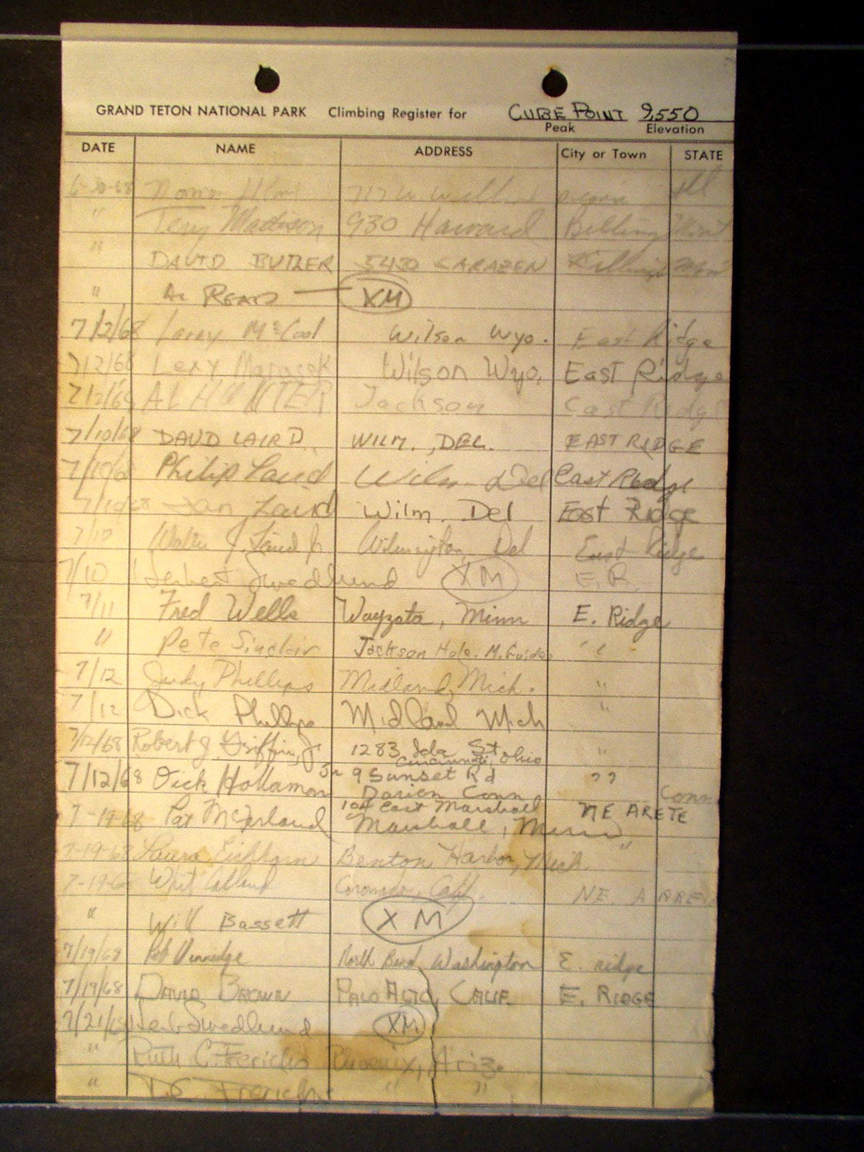 GRAND TETON NATIONAL PARK Climbing Register for CUBE POINT 9,550
Peak Elevation
DATE NAME ADDRESS City or Town STATE
6-30-68 Ill
" Terry Madison 930 Harvard Billings Mont
" DAVID BUTLER 5430 Billings Mon
" AL READ — XM
7/2/68 Larry McCool Wilson Wyo. East Ridge
7/2/68 Lexy Wilson Wyo. East Ridge
7/2/68 AL Jackson East Ridge
7/10/68 DAVD LAIRD WILM., DEL. EAST RIDGE
7/10/68 Philip Laird Wilm Del East Ridge
7/10/68 Laird Wilm. Del East Ridge
7/10 Walter J Laird Jr Wilmington, Del East Ridge
7/10 Herbert Swedlund XM E.R.
7/11 Fred Wells Wayzata, Minn E. Ridge
" Pete Sinclair Jackson Hole. M. Guides "
7/12 Judy Phillips Midland, Mich. "
7/12 Dick Phillips Midland Mich "
7/12/68 Robert J Griffin, Jr 1283 Ida St "
Cincinnati, Ohio
7/12/68 Dick Hollamon Sr 9 Sunset Rd ??
Darien Conn Conn
7-19-68 Pat McFarland 104 East Marshall NE ARETE
Marshall, Minn
7-19-68 Laura Eichhorn Benton Harbor, Mich. "
7-19-68 Whit Coronado, Calif. NE. ARRETE
" Will Bassett XM
7/19/67 North Bend, Washington E. ridge
7/19/68 DAVID BROWN PALO ALTO, CALIF. E. RIDGE
7/21/68 Herb Swedlund XM
" Ruth C. Frerichs Phoenix, Ariz.
" Frerichs " "